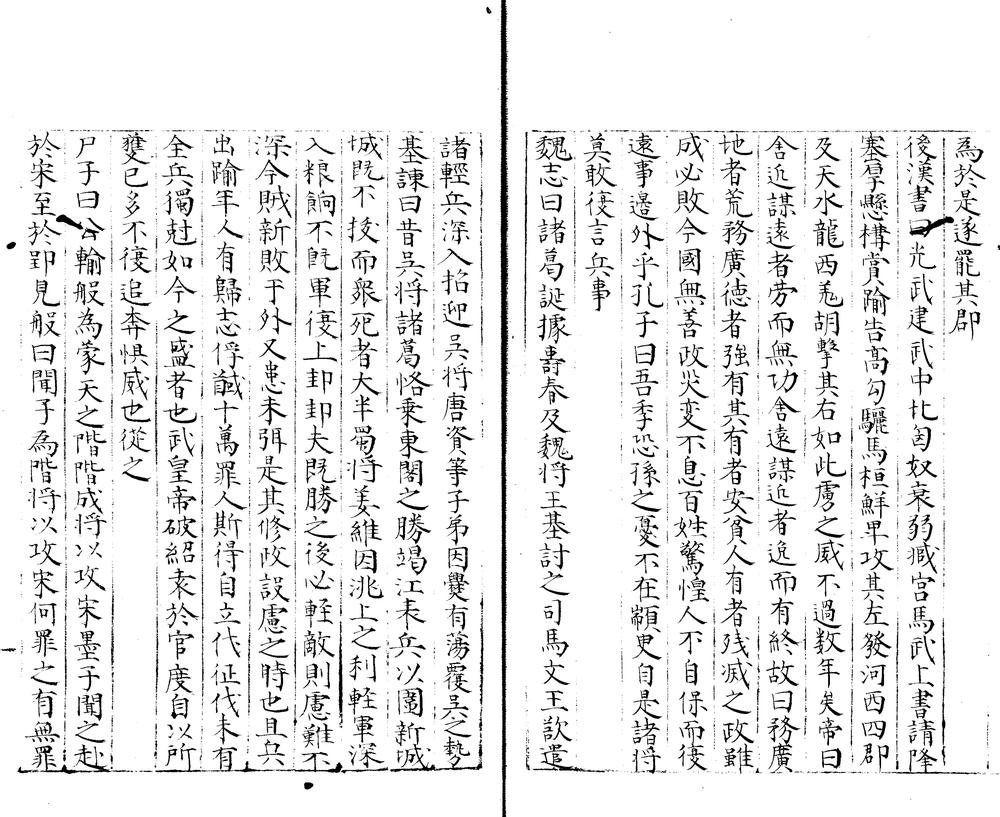 為於是遂罷其郡
後漢書曰光武建武中北匈奴衰弱臧宮馬武上書請降
塞厚懸構賞踰告高勾驪馬桓鮮卑攻其左發河西四郡
及天水龍西羌胡擊其右如此虜之威不過数年矣帝曰
舎近謀遠者劳而無功舎遠謀近者逸而有終故曰務廣
地者荒務廣徳者強有其有者安貧人有者残滅之政雖
成必敗今國無善政災変不息百姓驚惶人不自保而復
遠事邉外乎孔子曰吾季恐孫之憂不在顓臾自是諸将
莫敢復言兵事
魏志曰諸葛誕據壽春及魏将王基討之司馬文王欲遣
諸軽兵深入招迎呉将唐資等子弟因釁有蕩覆呉之勢
基諫曰昔呉将諸葛恪乗東閣之勝竭江表兵以圍新城
城既不抜而衆死者大半蜀将姜維因洮上之利軽軍深
入粮餉不旣軍復上邽邽夫既勝之後必軽敵則慮難不
深今賊新敗于外又患未弭是其修政設慮之時也且兵
出踰年人有歸志俘馘十萬罪人斯得自立代征伐未有
全兵獨尅如今之盛者也武皇帝破紹表於官度自以所
獲已多不復追奔惧威也從之
尸子曰公輸般為蒙天之階階成将以攻宋墨子聞之赴
於宋至於郢見般曰聞子為階将以攻宋何罪之有無罪